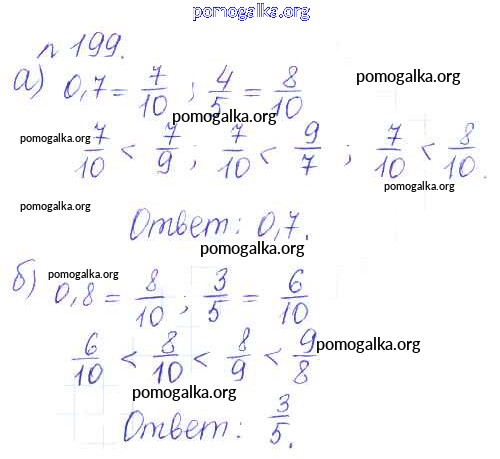 pomogalka.org
№ 199.
а) 0,7 = 7/10 ; 4/5 = 8/10 pomogalka.org
pomogalka.org
pomogalka.org 7/10 < 7/9 ; 7/10 < 9/7 ; 7/10 < 8/10.
pomogalka.org pomogalka.org
pomogalka.org
Ответ: 0,7.
pomogalka.org
б) pomogalka.org
0,8 = 8/10 ; 3/5 = 6/10
6/10 < 8/10 < 8/9 < 9/8 pomogalka.org
pomogalka.org
Ответ: 3/5.
pomogalka.org